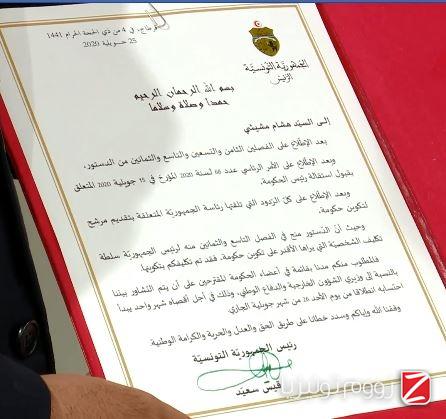 قرطاج، في 4 من ذي الحجة الحرام 1441
25 جويلية 2020
الجمهورية التونسية
الرئيس
بسم الله الرحمان الرحيم
حمدا وصلاة وسلاما
إلى السيد هشام مشيشي
بعد الإطلاع على الفصلين الثامن والتسعين والتاسع والثمانين من الدستور،
وبعد الإطلاع على الأمر الرئاسي عدد 68 لسنة 2020 المؤرخ في 15 جويلية 2020 المتعلق
بقبول استقالة رئيس الحكومة،
وبعد الإطلاع على كل الردود التي تلقتها رئاسة الجمهورية المتعلقة بتقديم مرشح
لتكوين حكومة،
وحيث أن الدستور منح في الفصل التاسع والثمانين منه لرئيس الجمهورية سلطة
تكليف الشخصية التي يراها الأقدر على تكوين حكومة، فقد تم تكليفكم بتكوينها.
فالمطلوب منكم مدنا بقائمة في أعضاء الحكومة المقترحين على أن يتم التشاور بيننا
بالنسبة إلى وزيري الشؤون الخارجية والدفاع الوطني، وذلك في أجل أقصاه شهر واحد يبدأ
احتسابه انطلاقا من يوم الأحد 26 من شهر جويلية الجاري.
وفقنا الله وإياكم وسدد خطانا على طريق الحق والعدل والحرية والكرامة الوطنية.
رئيس الجمهورية التونسية
قيس سعيد
Z